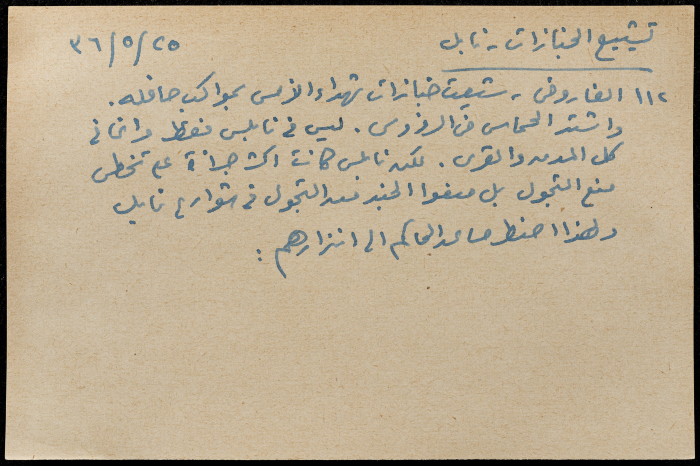 تشييع الجنازات - نابلس
٢٥/٥/٣٦
١١٢ الفاروض - شيعت جنازات شهداء الأمس بمواكب حافله.
واشتد الحماس في النفوس. ليس في نابلس فقط وانما في
كل المدن والقرى. لكن نابلس كانت اكثر جرأة على تخطي
منع التجول بل منعوا الجند من التجول في شوارع نابلس
ولهذا اضطر مساعد الحاكم الى انذارهم :